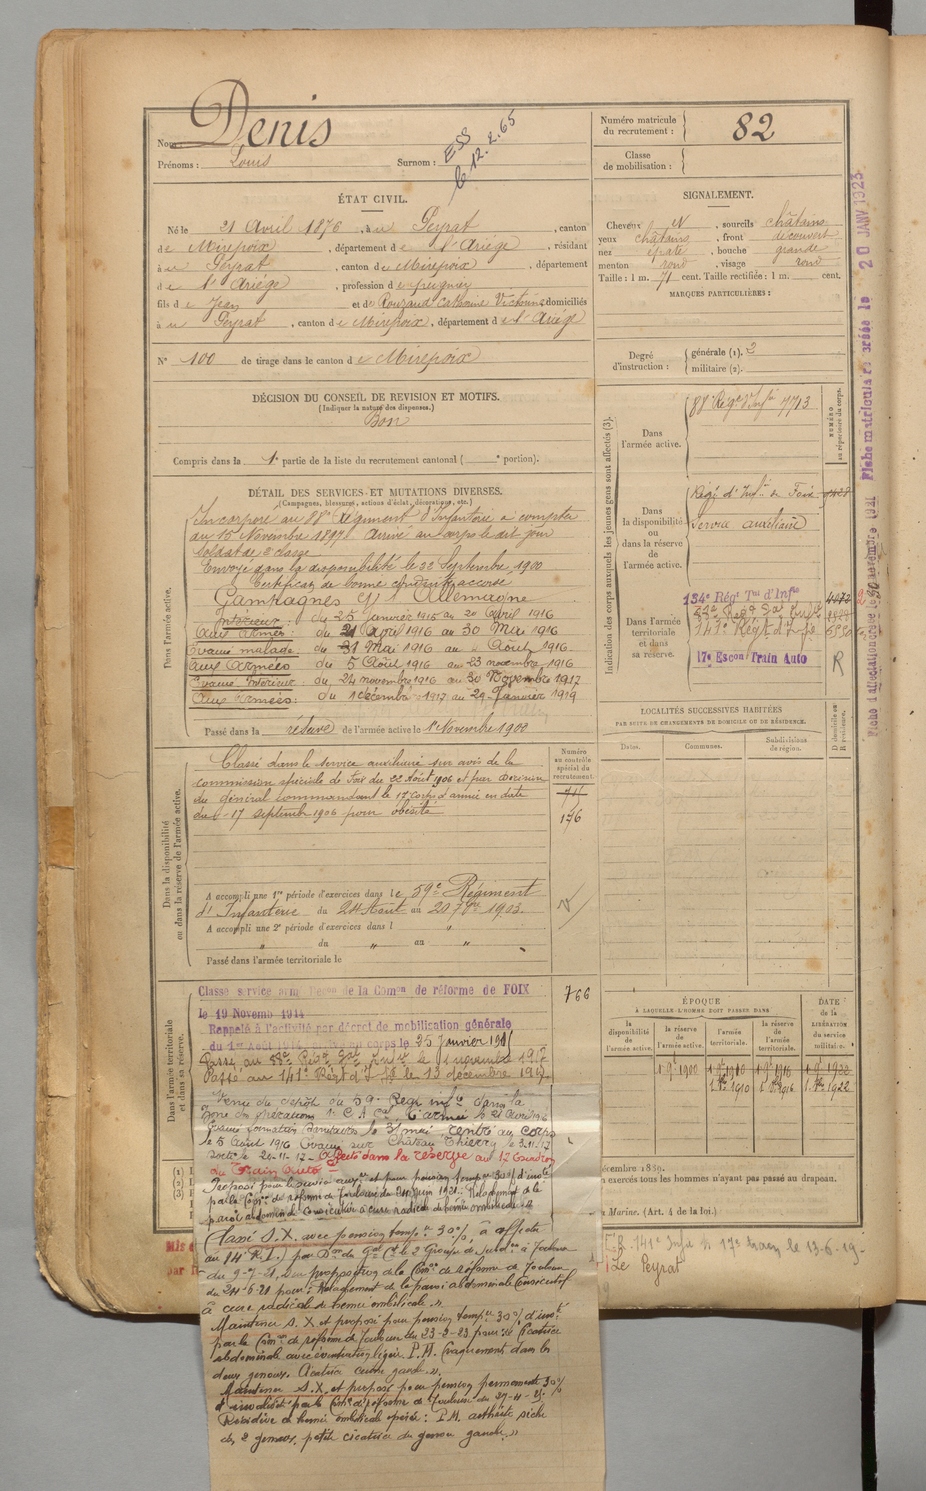 Nom : Denis
Prénoms : Louis Surnom :
le 12.2.65
Numéro matricule du recrutement : 82
Classe de mobilisation :
ÉTAT CIVIL.
Né le 21 Avril 1876, à Peyrat, canton
de Mirepoix, département de l'Ariège, résidant
à Peyrat, canton de Mirepoix, département
de l'Ariège, profession de
fils de Jean et de Rouzaud Catherine Victorine domiciliés
à Peyrat, canton de Mirepoix, département de l'Ariège
N° 100 de tirage dans le canton de Mirepoix
SIGNALEMENT.
Cheveux N, sourcils châtains
yeux châtains, front découvert
nez épaté, bouche grande
menton rond, visage rond
Taille : 1 m. 71 cent. Taille rectifiée : 1 m. cent.
MARQUES PARTICULIÈRES :
Degré d'instruction : générale (1). 2
militaire (2).
DÉCISION DU CONSEIL DE REVISION ET MOTIFS.
(Indiquer la nature des dispenses.)
Bon
Compris dans la 1e partie de la liste du recrutement cantonal ( e portion).
DÉTAIL DES SERVICES ET MUTATIONS DIVERSES.
(Campagnes, blessures, actions d'éclat, décorations, etc.)
Dans l'armée active.
Incorporé au 88e Régiment d'Infanterie à compter
du 15 Novembre 1897. Arrivé au corps le dit jour
Soldat de 2e classe
Envoyé dans la disponibilité le 22 Septembre 1900
Certificat de bonne conduite accordé
Campagnes c/ l'Allemagne
Intérieur : du 25 janvier 1915 au 20 Avril 1916
Aux Armées : du 21 Avril 1916 au 30 Mai 1916
Evacué malade : du 31 Mai 1916 au 4 Août 1916
Aux Armées du 5 Août 1916 au 23 novembre 1916
Evacué Intérieur : du 24 novembre 1916 au 30 Novembre 1917
Aux Armées : du 1 décembre 1917 au 29 Janvier 1919
Passé dans la réserve de l'armée active le 1er Novembre 1900
Indication des corps auxquels les jeunes gens sont affectés (3).
Dans l'armée active.
88e Régt d'Infie 7713
NUMÉRO au répertoire du corps.
Dans la disponibilité ou dans la réserve de l'armée active.
Régt d'Infie de Foix
Service auxiliaire
Dans l'armée territoriale et dans sa réserve.
134e Régt Tal d'Infie
141e Régt d'Infie
17e Escon Train Auto R
Fiche matriculaire créée le 20 JANV 1923
LOCALITÉS SUCCESSIVES HABITÉES
PAR SUITE DE CHANGEMENTS DE DOMICILE OU DE RÉSIDENCE.
D domicile ou R résidence.
Dates. Communes. Subdivisions de région.
Dans la disponibilité ou dans la réserve de l'armée active.
Numéro au contrôle spécial du recrutement.
Classé dans le service auxiliaire sur avis de la
commission spéciale de Foix du 22 Août 1906 et par décision
du général commandant le 17e corps d'armée en date
du 17 septembre 1906 pour obésité
176
A accompli une 1re période d'exercices dans le 59e Régiment
d'Infanterie du 24 Août au 20 7bre 1903.
A accompli une 2e période d'exercices dans l "
" du " au "
Passé dans l'armée territoriale le
Dans l'armée territoriale et dans sa réserve.
Classé service armé de la Comon de réforme de FOIX 766
le 19 Novemb 1914
Rappelé à l'activité par décret de mobilisation générale
du 1er Août 1914 au corps le 25 janvier 1915
Passé au 88e Régt Tal Infie le 1 novembre 191
Passé au 141e Régt d'Inf le 13 décembre 191
ÉPOQUE
À LAQUELLE L'HOMME DOIT PASSER DANS
la disponibilité de l'armée active. la réserve de l'armée active. l'armée territoriale. la réserve de l'armée territoriale.
DATE de la LIBÉRATION du service militaire.
1 9e 1900 1 9e 1910 1 9e 1916 1 9e 1922
1. 8re 1910 1. 8re 1916 1. 8re 1922
Venu du dépôt du 59e Régt Infie dans la
zone des opérations le 21 Avril 1916
formation Sanitaire le 31 mai, rentré au corps
le 5 Août 1916 Evacué sur Château Thierry le 3.11.17
Sorti le 24-11-17 - Affecté dans la réserve au 17 Escadron
du Train Auto
Proposé pour le service auxre et pour pension tempre 30% d'invté
par la Comon de réforme de Toulouse du 24 juin 1921. Relâchement de la
paroi abdominale consécutive à cure radicale de hernie ombilicale
Classé S.X. avec pension tempre 30%, à affecter
au 14e R.I. par Don du Gal Ct le 2 Groupe de Subdons à Toulouse
du 9-7-21, sur proposition de la Comon de réforme de Toulouse
du 24-6-21 pour : Relâchement de la paroi abdominale consécutif
à cure radicale de hernie ombilicale. »
Maintenu S.X. et proposé pour pension tempre 30% d'invté
par la Comon de réforme de Toulouse du 23-2-23 pour : Cicatrice
abdominale avec éventration légère. P.M. Craquements dans les
deux genoux. Cicatrice genou gauche. »
Maintenu S.X. et proposé pour pension permanente 30%
d'invalidité par la Comon de réforme de Toulouse du
Récidive de hernie ombilicale opérée : P.M. arthrite sèche
des 2 genoux, petite cicatrice du genou gauche. »
décembre 1889.
n exercés tous les hommes n'ayant pas passé au drapeau.
e Marine. (Art. 4 de la loi.)
le 13-6-19-
Le Peyrat